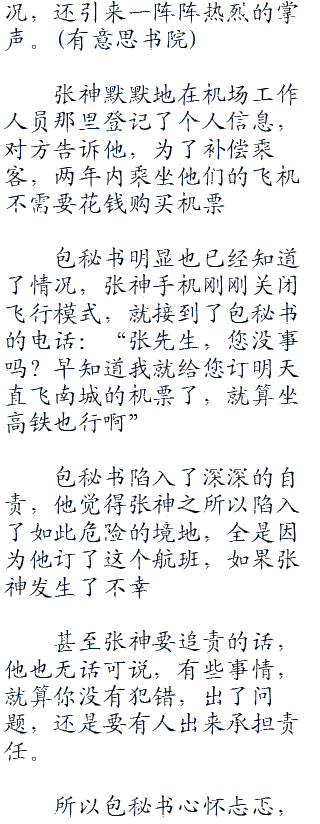 况，还引来一阵阵热烈的掌
声。(有意思书院)
张神默默地在机场工作
人员那里登记了个人信息，
对方告诉他，为了补偿乘
客，两年内乘坐他们的飞机
不需要花钱购买机票
包秘书明显也已经知道
了情况，张神手机刚刚关闭
飞行模式，就接到了包秘书
的电话：“张先生，您没事
吗？早知道我就给您订明天
直飞南城的机票了，就算坐
高铁也行啊”
包秘书陷入了深深的自
责，他觉得张神之所以陷入
了如此危险的境地，全是因
为他订了这个航班，如果张
神发生了不幸
甚至张神要追责的话，
他也无话可说，有些事情，
就算你没有犯错，出了问
题，还是要有人出来承担责
任。
所以包秘书心怀忐忑，